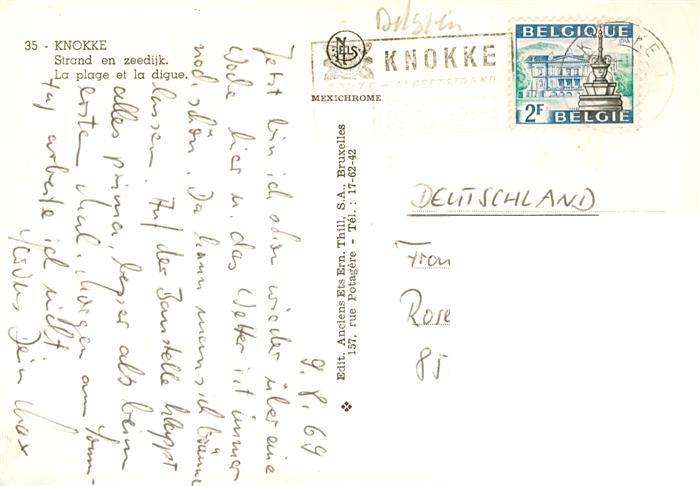 35 - KNOKKE
Strand en zeedijk.
La plage et la digue.
NELS
MEXICHROME
KNOKKE
BELGIQUE
2F
BELGIE
Edit. Anciens Ets Ern. Thill, S.A., Bruxelles
157, rue Potagère - Tél. : 17-62-42
9.8.69
Jetzt bin ich schon wieder über eine
Woche hier u. das Wetter ist immer
noch schön. Da kann man sich bräunen
lassen. Auf der Baustelle klappt
alles prima, besser als beim
ersten Mal. Morgen am Sonn-
tag arbeite ich nicht
Dein Max
DEUTSCHLAND
Frau
Rose
85